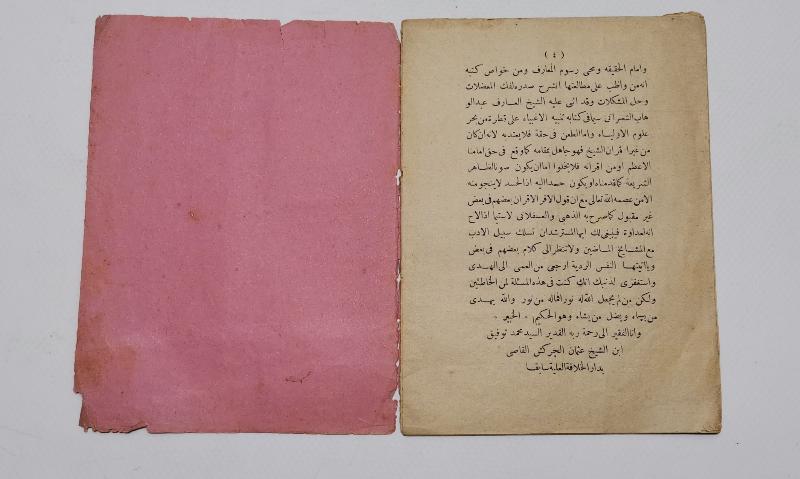 ( ٤ )
وامام الحقيقه ومحى رسوم المعارف ومن خواص كتبه
انه من واظب على مطالعتها انشرح صدره لفك المعضلات
وحل المشكلات وقد اثى عليه الشيخ العارف عبدالو
هاب الشعرانى سيما فى كتابه تنبيه الاغبياء على قطرة من بحر
علوم الاولياء واما الطعن فى حقة فلا يعتد به لانه ان كان
من غير اقران الشيخ فهو جاهل بمقامه كما وقع فى حق امامنا
الاعظم اومن اقرانه فلا يخلوا اما ان يكون صونا لظاهر
الشريعة كما قدمناه اويكون حسدا اليه اذ الحسد لا ينجو منه
الا من عصمه الله تعالى مع ان قول الاقر الاقران بعضهم فى بعض
غير مقبول كما صرح به الذهبى والعسقلانى لاسيما اذ الاح
انه لعداوة فينبغى لك ايها المسترشد ان تسلك سبيل الادب
مع المشايخ الماضين ولاتنظر الى كلام بعضهم فى بعض
ويا ايتها النفس الردية ارجعى من العمى الى الهدى
واستغفرى لذنبك انك كنت فى هذه المسئلة لمن الخاطئين
ولكن من لم يجعل الله له نورا فماله من نور والله يهدى
من يشاء ويضل من يشاء وهو الحكيم الخبير
وانا الفقير الى رحمة ربه القدير السيد محمد توفيق
ابن الشيخ عثمان الچركشى القاضى
بدار الخلافة العلية سابقا